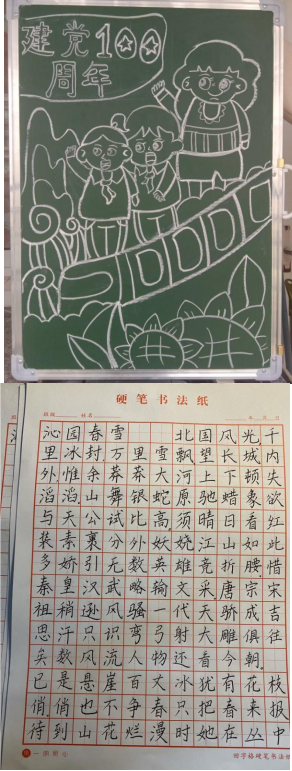 建党100
周年
硬笔书法纸
班级 姓名 年 月 日
沁园春雪 北国风光千
里冰封万里雪飘望长城内
外惟余莽莽大河上下顿失
滔滔山舞银蛇原驰蜡象欲
与天公试比高须晴日看红
装素裹分外妖娆江山如此
多娇引无数英雄竞折腰,惜
秦皇汉武略输文采唐宗宋
祖稍逊风骚一代天骄成吉
思汗只识弯弓射大雕俱往
矣数风流人物还看今朝。
已是悬崖百丈冰犹有花枝
俏,俏也不争春只把春来报
待到山花烂漫时她在丛中
田字格硬笔书法纸